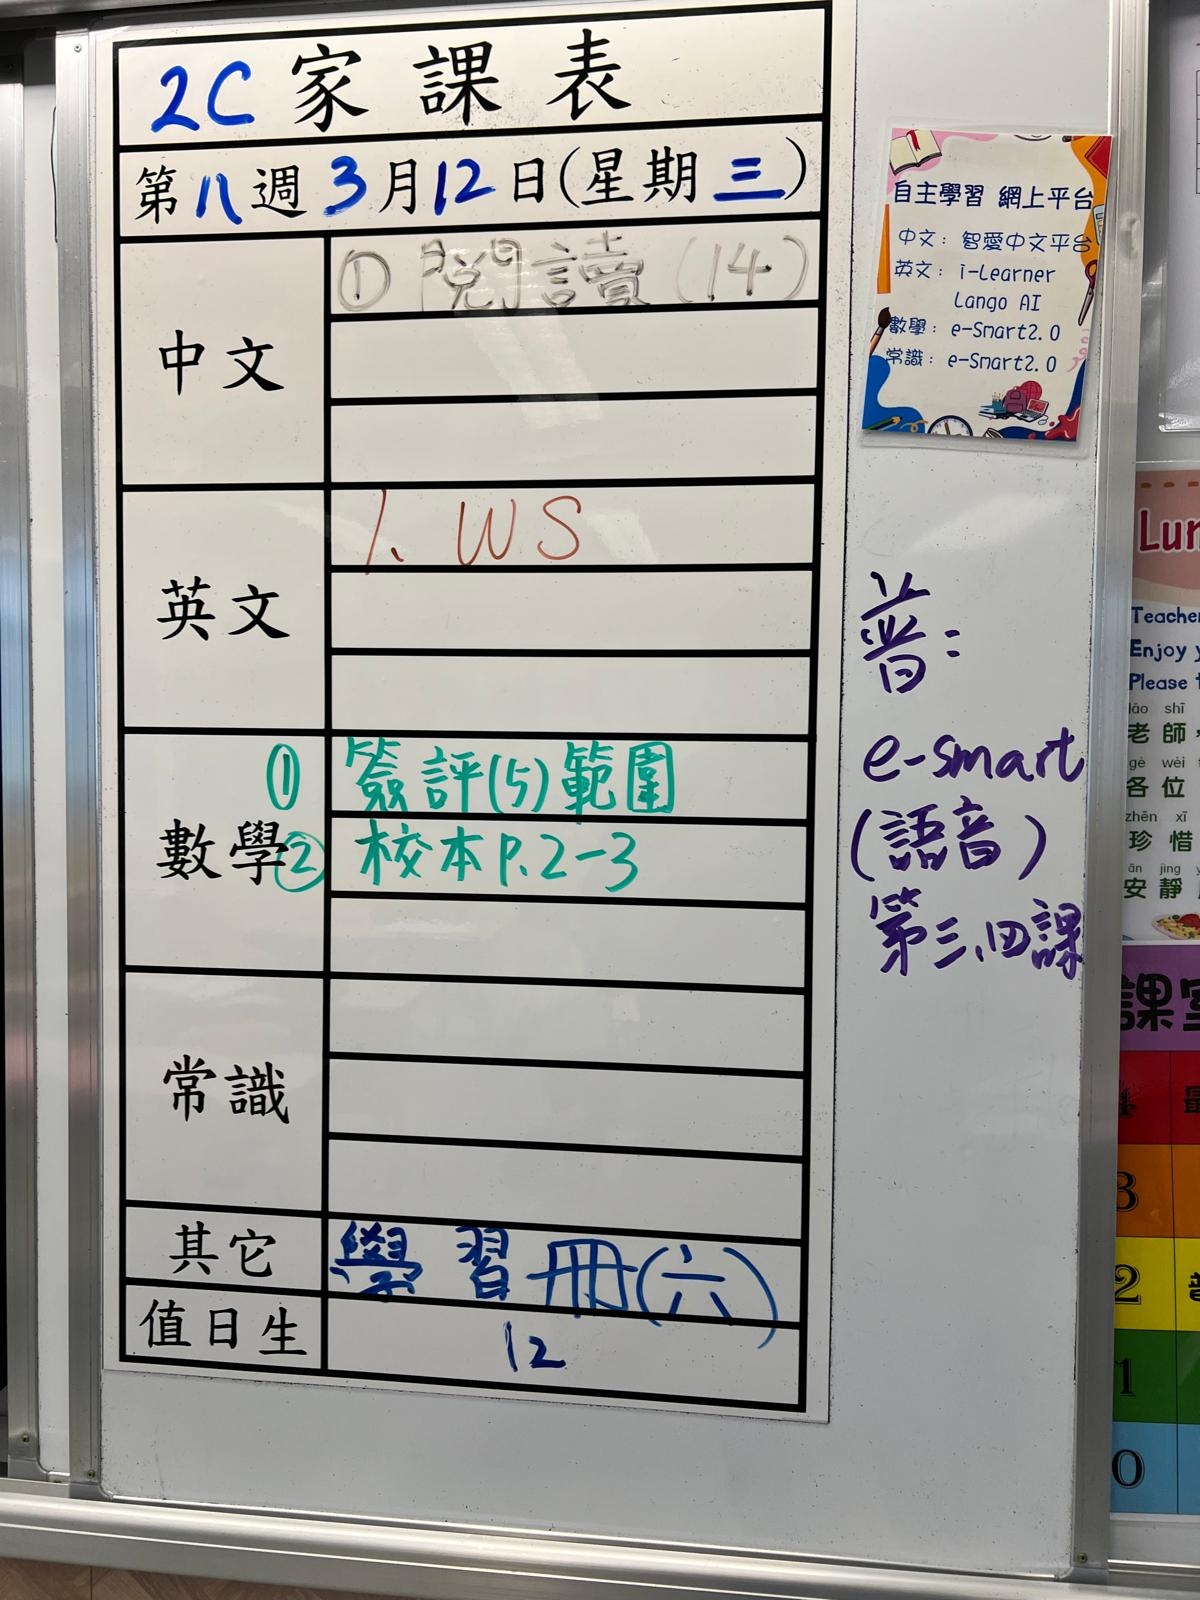 2C 家課表
第八週 3月12日(星期三)
中文
① 閱讀 (14)
英文
1. WS
數學
① 簽評(5)範圍
② 校本P.2-3
常識
其它
學習冊(六)
值日生
12
自主學習 網上平台
中文: 智愛中文平台
英文: i-Learner
Lango AI
數學: e-Smart2.0
常識: e-Smart2.0
普:
e-smart
(語音)
第三、四課
Lun
Teacher
Enjoy y
Please t
lǎo shī
老師,
gè wèi
各位
zhēn xī
珍惜
ān jìng
安靜
課室
4
3
2
1
0